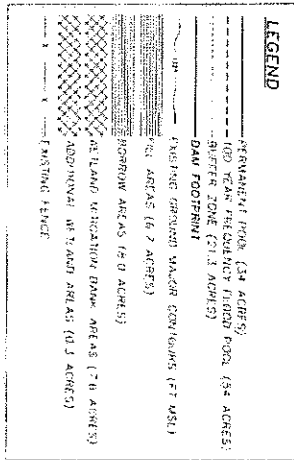 LEGEND
PERMANENT POOL (34 ACRES)
100 YEAR FREQUENCY FLOOD POOL (54 ACRES)
BUFFER ZONE (21.3 ACRES)
DAM FOOTPRINT
EXISTING GROUND MAJOR CONTOURS (FT MSL)
FILL AREAS (6.7 ACRES)
BORROW AREAS (8.0 ACRES)
WETLAND MITIGATION BANK AREAS (7.6 ACRES)
ADDITIONAL WETLAND AREAS (0.3 ACRES)
EXISTING FENCE